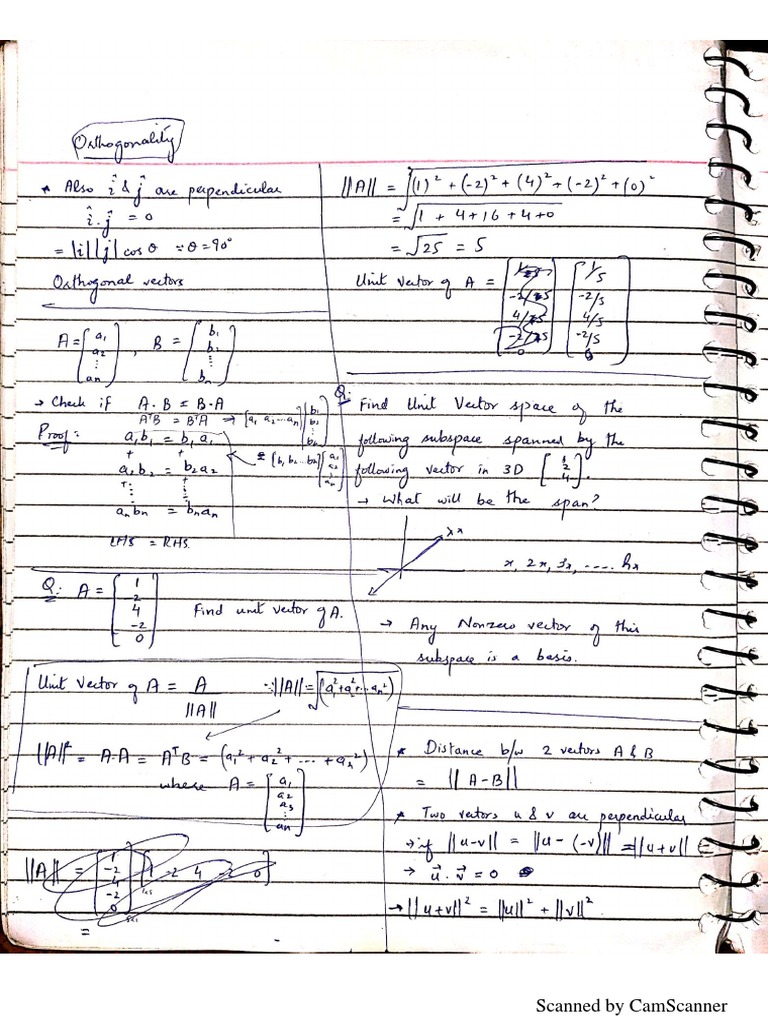 Orthogonality
* Also î & ĵ are perpendicular
î . ĵ = 0
= |i||j| cos θ ∵ θ = 90°
Orthogonal vectors
A = [a₁ a₂ ⋮ aₙ] , B = [b₁ b₂ ⋮ bₙ]
→ Check if A.B = B.A
AᵀB = BᵀA ⇒ [a₁ a₂ ... aₙ] [b₁ b₂ ⋮ bₙ]
Proof: a₁b₁ = b₁a₁
= [b₁ b₂ ... bₙ] [a₁ a₂ ⋮ aₙ]
+ +
a₁b₂ = b₂a₂
+ ⋮ + ⋮
aₙbₙ = bₙaₙ
LHS = RHS.
Q: A = [1 2 4 -2 0] Find unit vector of A.
Unit Vector of A = A / ||A|| ∵ ||A|| = √(a₁² + a₂² + ... aₙ²)
||A||² = A.A = AᵀB = (a₁² + a₂² + ... + aₙ²)
where A = [a₁ a₂ a₃ ⋮ aₙ]
||A|| = [1 -2 4 -2 0] [1 -2 4 -2 0]
=
||A|| = √(1)² + (-2)² + (4)² + (-2)² + (0)²
= √1 + 4 + 16 + 4 + 0
= √25 = 5
Unit Vector of A = [1/5 -2/5 4/5 -2/5 0]
Q: Find Unit Vector space of the
following subspace spanned by the
following vector in 3D [1 2 4].
→ What will be the span?
x, 2x, 3x, ..... kx
→ Any Nonzero vector of this
subspace is a basis.
* Distance b/w 2 vectors A & B
= || A - B ||
* Two vectors u & v are perpendicular
→ if ||u-v|| = ||u-(-v)|| = ||u+v||
→ u⃗ . v⃗ = 0
→ ||u+v||² = ||u||² + ||v||²
Scanned by CamScanner